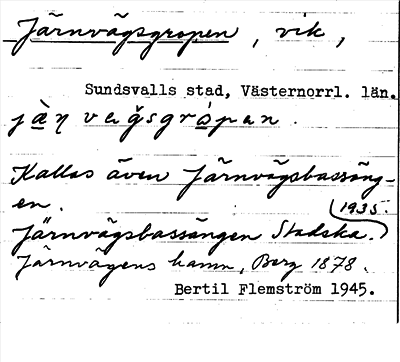 Järnvägsgropen, vik,
Sundsvalls stad, Västernorrl. län.
jà̱ŋ vagsgró̱pan.
Kallas även Järnvägsbassäng-
en.
1935.
Järnvägsbassängen Stadska.
Järnvägens hamn, Berg 1878.
Bertil Flemström 1945.